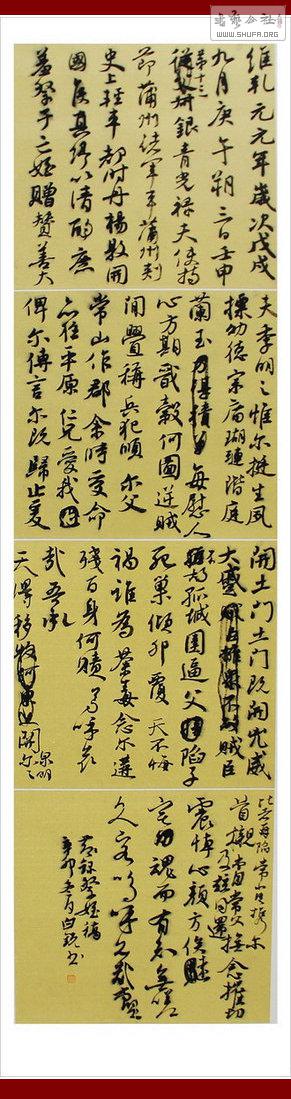 书艺公社
WWW.SHUFA.ORG
維乾元元年歲次戊戌
九月庚午朔三日壬申
第十三
從父銀青光禄夫使持
節蒲州諸軍事蒲州刺
史上輕車都尉丹楊縣開
國侯真卿以清酌庶
羞祭于亡姪贈贊善大
夫季明之惟爾挺生夙
標幼德宗廟瑚璉階庭
蘭玉每慰人
心方期戩穀何圖逆賊
間釁稱兵犯順尔父
常山作郡余時受命
亦在平原仁兄愛我
俾尔傳言尔既歸止爰
開土門土門既開兇威
大蹙賊臣
孤城圍逼父陷子
死巢傾卵覆天不悔
禍誰為荼毒念尔遘
殘百身何贖嗚呼哀
哉吾承
天澤移牧
泉明
比者再陷常山攜尔
首櫬及茲同還撫念摧切
震悼心顏方俟
宅幼魂而有知無嗟
久客嗚呼哀哉尚饗
節録祭姪稿
辛卯